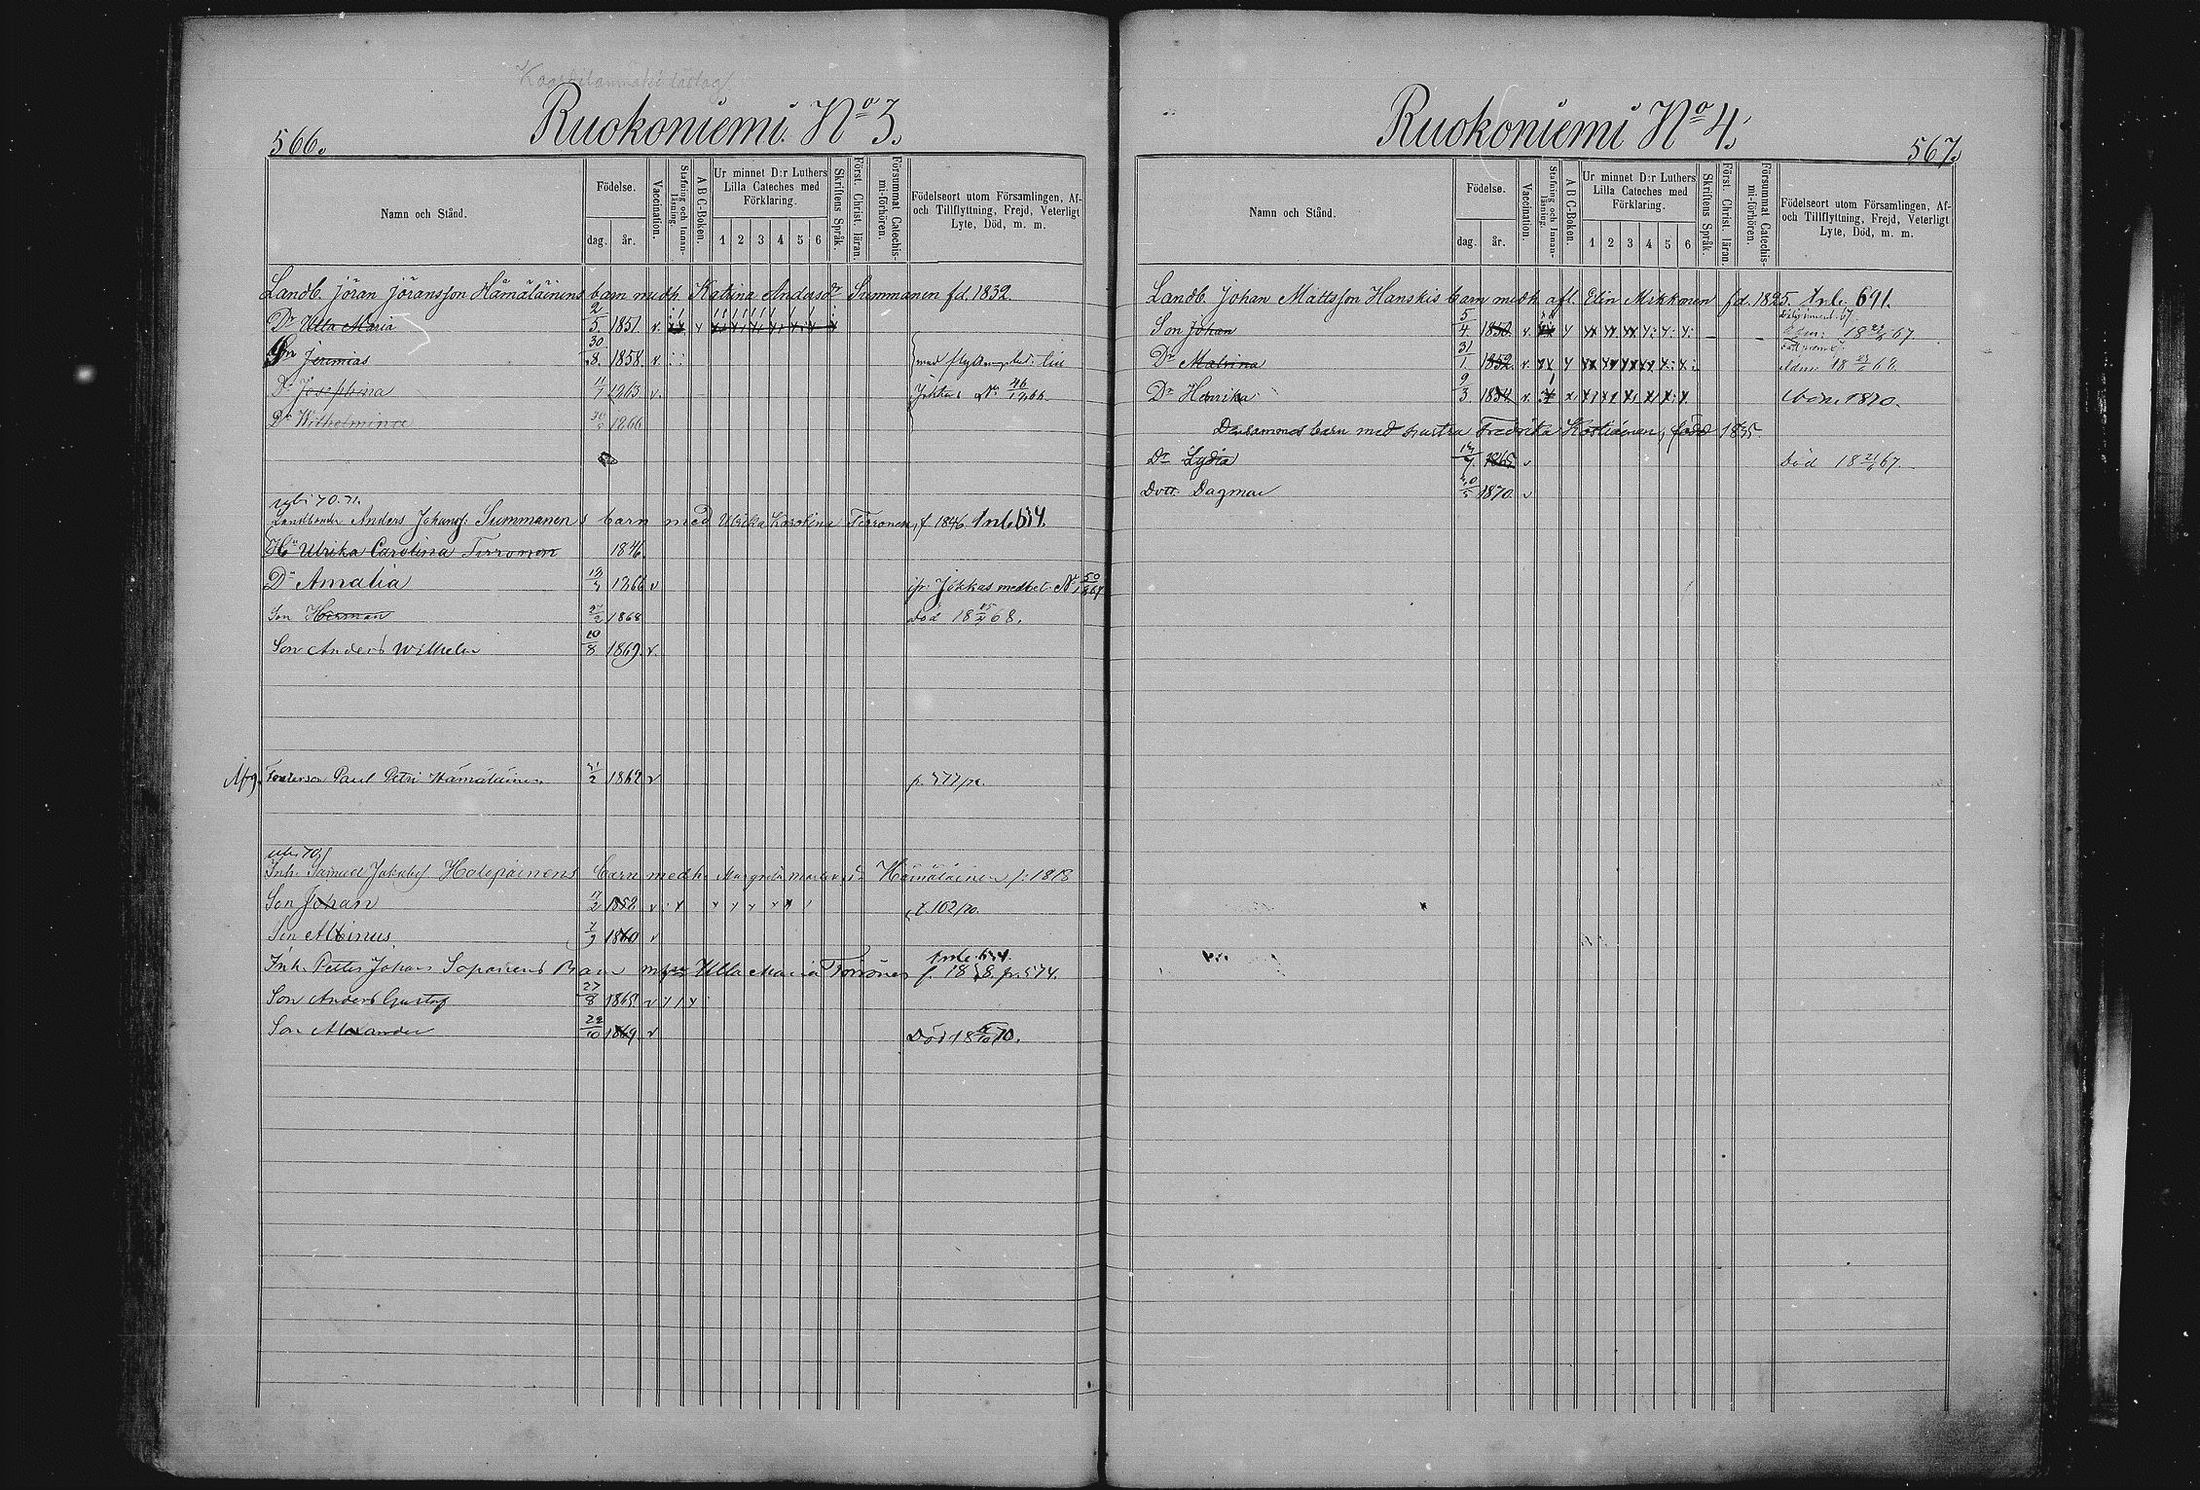 566.
Ruokoniemi. No 3.
Namn och Stånd.
Födelse.
dag. år.
Vaccination.
Stafning och Innan-läsning.
A B C-Boken.
Ur minnet D:r Luthers Lilla Cateches med Förklaring.
1 2 3 4 5 6
Skriftens Språk.
Först. Christ. läran.
Försummat Catechis-mi-förhören.
Födelseort utom Församlingen, Af- och Tillflyttning, Frejd, Veterligt Lyte, Död, m. m.
Landb. Jöran Jöransson Hämäläinens barn med h. Katrina Andersdr Summanen fd. 1832.
Dr Ulla Maria 2/5. 1851. v.
Sn Jeremias 30/8. 1858. v.
Dr Josephina 11/7 1863 v.
Jokkas No 46/1866.
Dr Wilhelmina 30/ 1866
70.71.
Landbonde Anders Johanss: Summanens barn med Ulrika Karolina Tirronen, f 1846. Inl. 634.
Hu Ulrika Carolina Tirronen 1846.
Dr Amalia 1866 v
Jokkas med bet. No 50/1867
Son Herman 1868
död 18 68.
Son Anders Wilhelm 10/8 1869. v.
Fosterson Paul Petri Hämäläinen /2 1862 v
70
Inh. Samuel Jakobss Holopainens barn med h. Margreta Hämäläinen f. 1818
Son Johan 17/2 1852 v
162/70.
Son Albinus. 7/9 1860 v
Inl. 634.
Inh. Petter Johans Soparens Barn m hu Ulla Maria Tirrones f. 1838. p. 574.
Son Anders Gustaf 27/8 1865 v
Son Alexander 22/10 1869 v
Död 18 70.
Ruokoniemi No 4.
567.
Namn och Stånd.
Födelse.
dag. år.
Vaccination.
Stafning och Innan-läsning.
A B C-Boken.
Ur minnet D:r Luthers Lilla Cateches med Förklaring.
1 2 3 4 5 6
Skriftens Språk.
Först. Christ. läran.
Försummat Catechis-mi-förhören.
Födelseort utom Församlingen, Af- och Tillflyttning, Frejd, Veterligt Lyte, Död, m. m.
Landb. Johan Mattsson Hanskis barn med h. afl. Elin Mikkonen fd. 1825. Inl. 691.
Son Johan 5/4. 1850. v.
18 67.
Dr Matrina 31/1. 1852. v.
18 68.
Dr Henrika 9/3. 1854 v.
1870.
Densammes barn med hustru Fredrika Kostiainen, född 1835.
Dr Lydia /7. 1865. v
Död 18 67.
Dott. Dagmar /5 1870 v